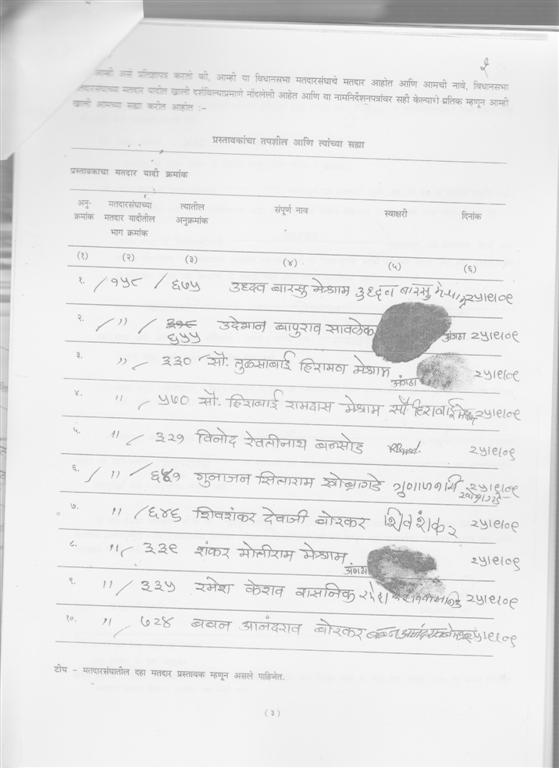 आम्ही असे प्रतिज्ञापन करतो की, आम्ही या विधानसभा मतदारसंघाचे मतदार आहोत आणि आमची नावे, विधानसभा
मतदारसंघाच्या मतदार यादीत खाली दर्शविल्याप्रमाणे नोंदलेली आहेत आणि या नामनिर्देशनपत्रांवर सही केल्याचे प्रतिक म्हणून आम्ही
खाली आमच्या सह्या करीत आहोत :-
प्रस्तावकांचा तपशील आणि त्यांच्या सह्या
प्रस्तावकाचा मतदार यादी क्रमांक
अनु- मतदारसंघाच्या त्यातील संपूर्ण नाव स्वाक्षरी दिनांक
क्रमांक मतदार यादीतील अनुक्रमांक
भाग क्रमांक
(१) (२) (३) (४) (५) (६)
१. / १५८ / ६७५ उध्दव बारसु मेश्राम उध्दव बारसु २५।९।०९
२. / " / उदेभान बापुराव सावलेक अंगठा २५।९।०९
६५५
३. " / ३३० सौ. तुळसाबाई हिरामण मेश्राम अंगठा २५।९।०९
४. " / ५७० सौ. हिराबाई रामदास मेश्राम सौ हिराबाई २५।९।०९
५. " / ३२१ विनोद रेवतीनाथ बन्सोड २५।९।०९
६. / " / गुलाजन सिताराम खोब्रागडे २५।९।०९
७. " / ६४६ शिवशंकर देवाजी बोरकर शिवशंकर २५।९।०९
८. " / ३३९ शंकर मोतीराम मेश्राम अंगठा २५।९।०९
९. " / ३३५ रमेश केशव वासनिक २५।९।०९
१०. " / ७२४ बबन आनंदराव बोरकर २५।९।०९
टीप - मतदारसंघातील दहा मतदार प्रस्तावक म्हणून असले पाहिजेत.
(३)